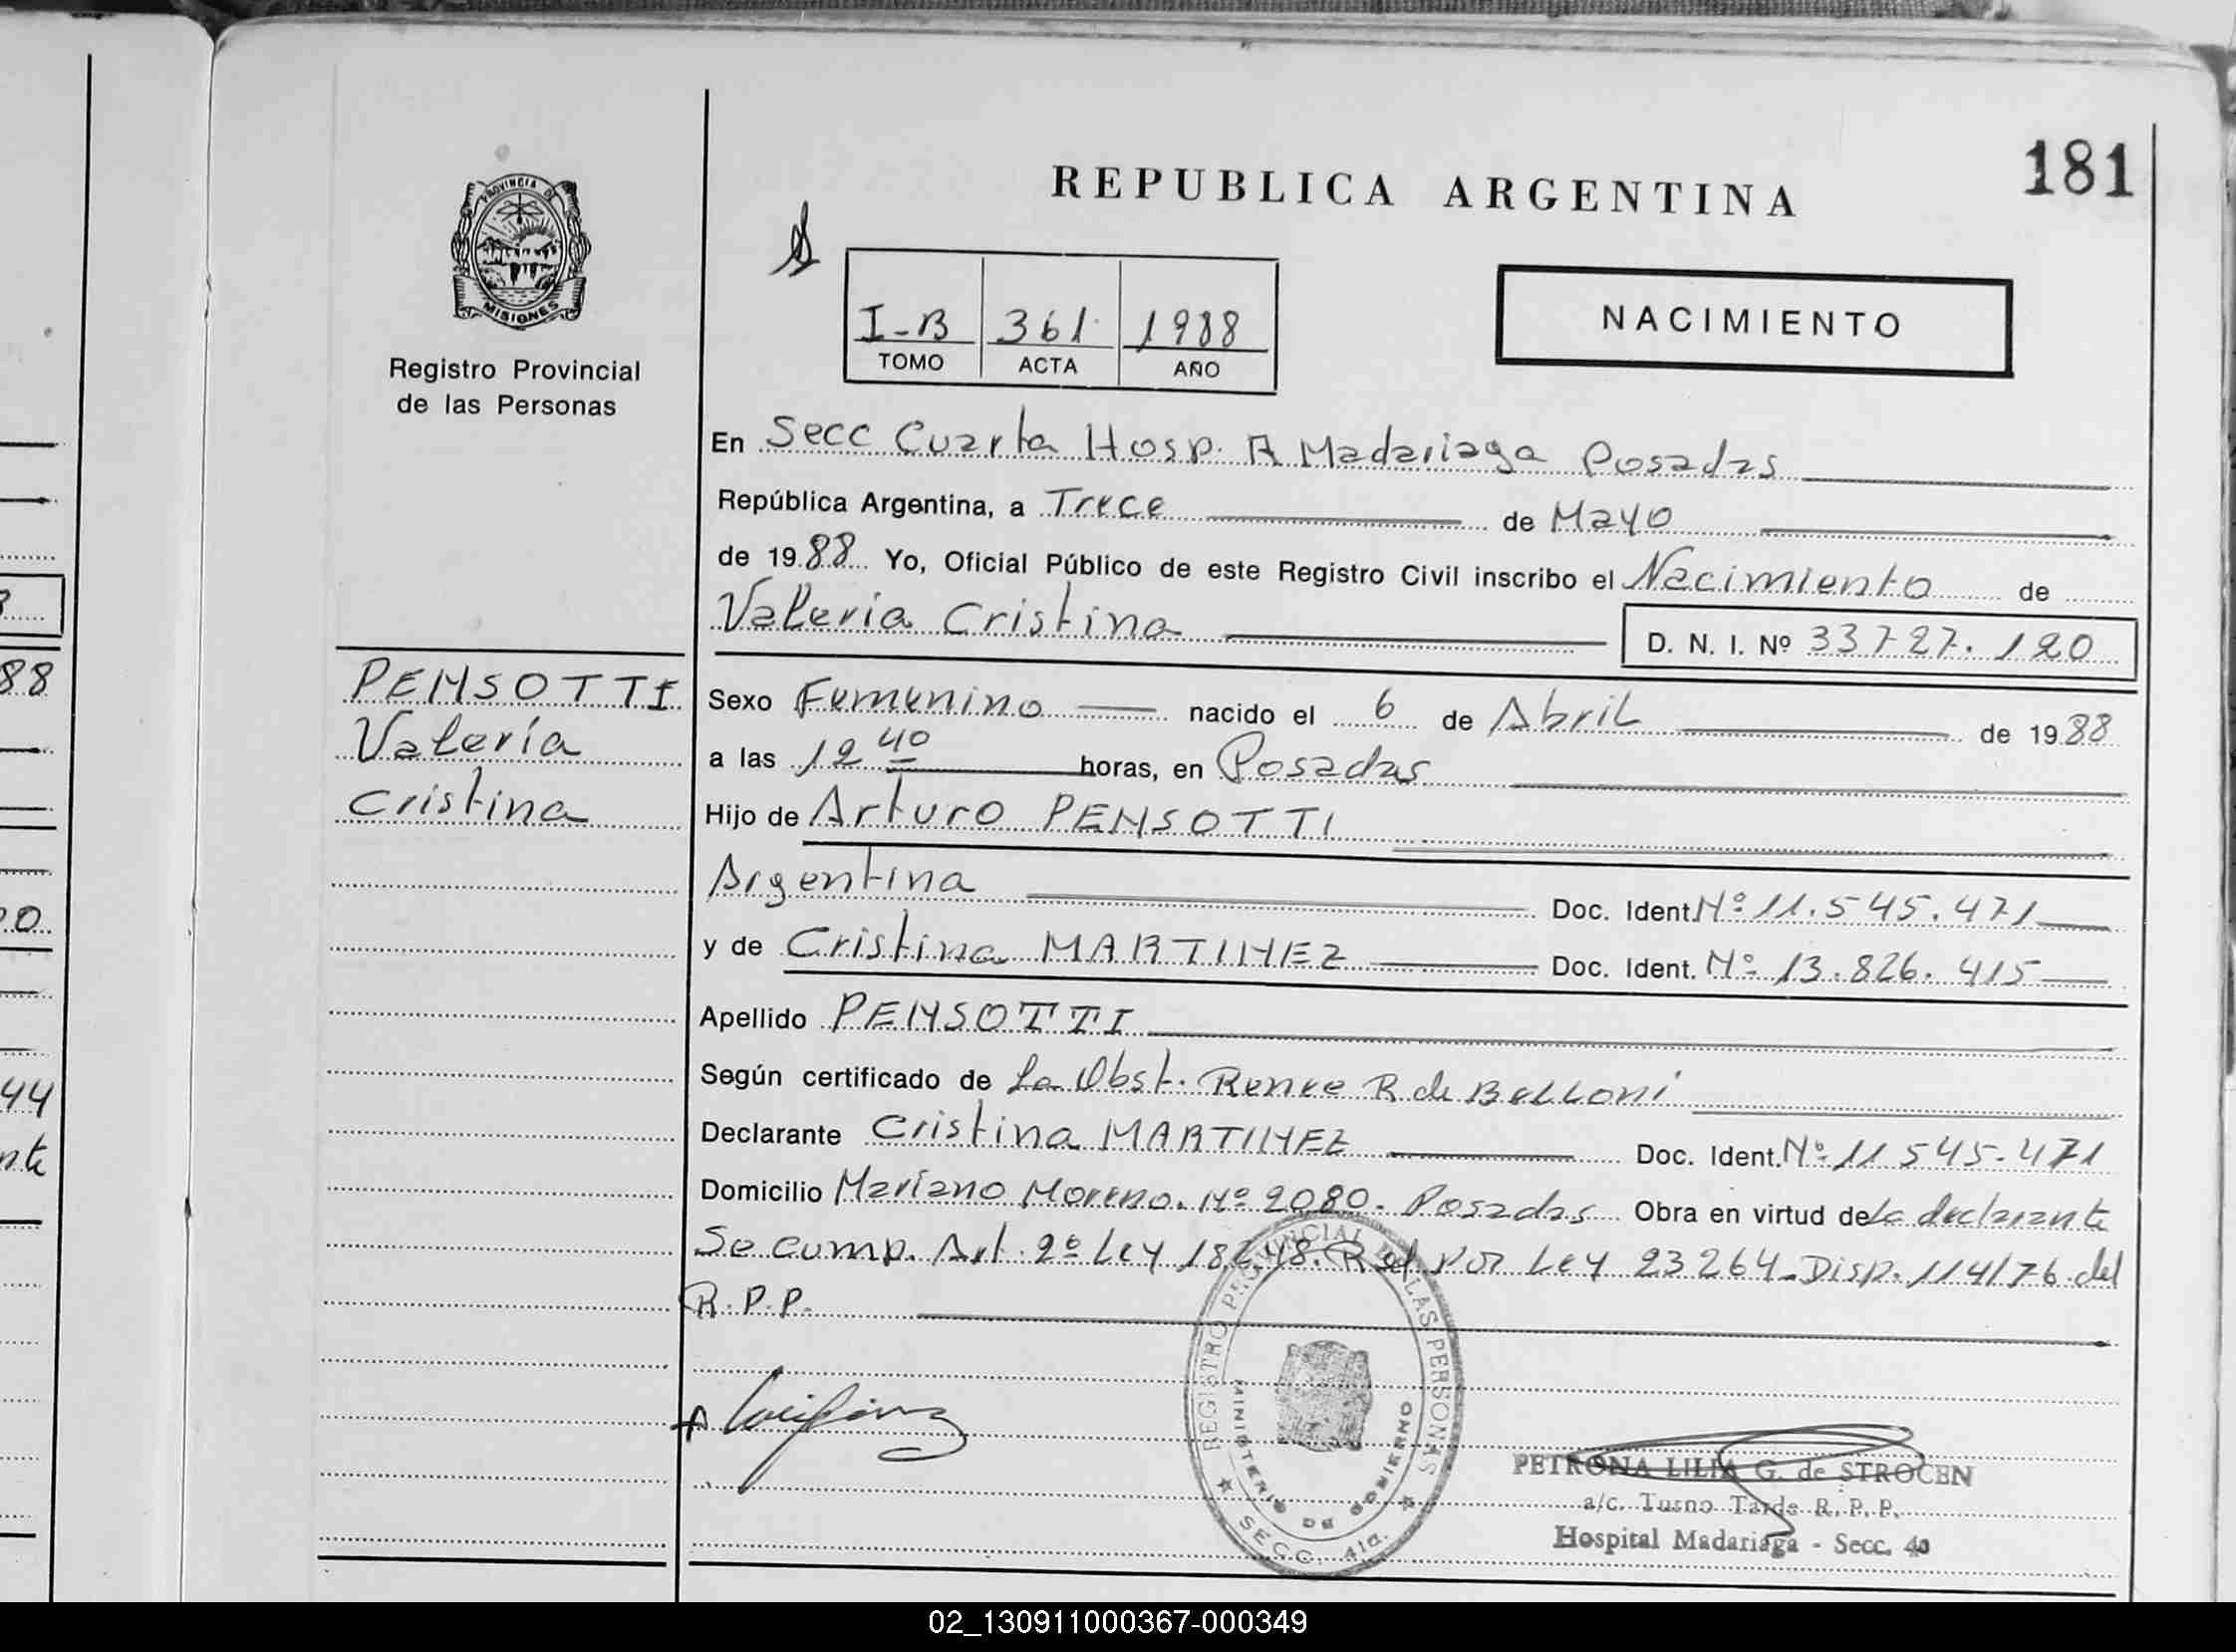 181
REPUBLICA ARGENTINA
PROVINCIA DE
MISIONES
Registro Provincial
de las Personas
I-B 361 1988
TOMO ACTA AÑO
NACIMIENTO
En Secc Cuarta Hosp. R Madariaga Posadas
República Argentina, a Trece de Mayo
de 1988 Yo, Oficial Público de este Registro Civil inscribo el Nacimiento de
Valeria Cristina D. N. I. Nº 33727.120
PENSOTTI
Valería
Cristina
Sexo Femenino nacido el 6 de Abril de 1988
a las 12 40 horas, en Posadas
Hijo de Arturo PENSOTTI
Argentina Doc. Ident. Nº 11.545.471
y de Cristina MARTINEZ Doc. Ident. Nº 13.826.415
Apellido PENSOTTI
Según certificado de La Obst. Renee R de Belloni
Declarante Cristina MARTINEZ Doc. Ident. Nº 11 545.471
Domicilio Mariano Moreno. Nº 2080. Posadas Obra en virtud de La declarante
Se cump. Art. 2º Ley 18248. R el por Ley 23264. Disp. 114/76 del
R.P.P.
REGISTRO PROVINCIAL DE LAS PERSONAS
MINISTERIO DE GOBIERNO
SECC. 4ta.
PETRONA LILIA G. de STROCEN
a/c. Turno Tarde R. P. P.
Hospital Madariaga - Secc. 4a
88
44
nte
02_130911000367-000349